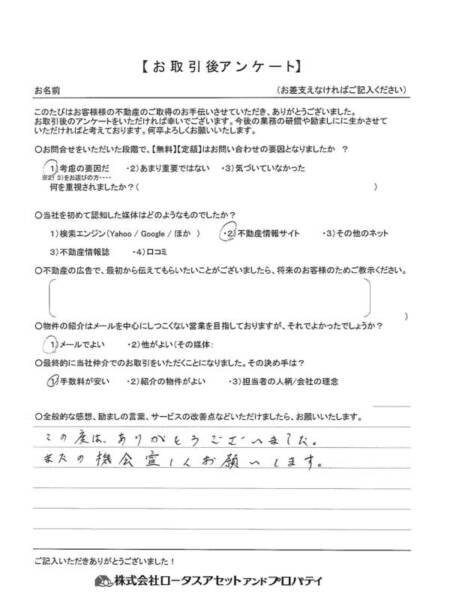 【お取引後アンケート】
お名前 (お差支えなければご記入ください)
このたびはお客様様の不動産のご取得のお手伝いさせていただき、ありがとうございました。
お取引後のアンケートをいただければ幸いでございます。今後の業務の研鑽や励ましにに生かさせて
いただければと考えております。何卒よろしくお願いいたします。
○お問合せをいただいた段階で、【無料】【定額】はお問い合わせの要因となりましたか ？
1)考慮の要因だ ・2)あまり重要ではない ・3)気づいていなかった
※2) 3)をお選びの方・・・・
何を重視されましたか？( )
○当社を初めて認知した媒体はどのようなものでしたか？
1)検索エンジン(Yahoo / Google / ほか ) ・2)不動産情報サイト ・3)その他のネット
・3)不動産情報誌 ・4)口コミ
○不動産の広告で、最初から伝えてもらいたいことがございましたら、将来のお客様のためご教示ください。
)
○物件の紹介はメールを中心にしつこくない営業を目指しておりますが、それでよかったでしょうか？
1)メールでよい ・2)他がよい(その媒体:
○最終的に当社仲介でのお取引をいただくことになりました。その決め手は？
1)手数料が安い ・2)紹介の物件がよい ・3)担当者の人柄/会社の理念
○全般的な感想、励ましの言葉、サービスの改善点などいただけましたら、お願いいたします。
この度は、ありがとうございました。
またの機会宜しくお願いします。
ご記入いただきありがとうございました！
株式会社ロータスアセットアンドプロパティ